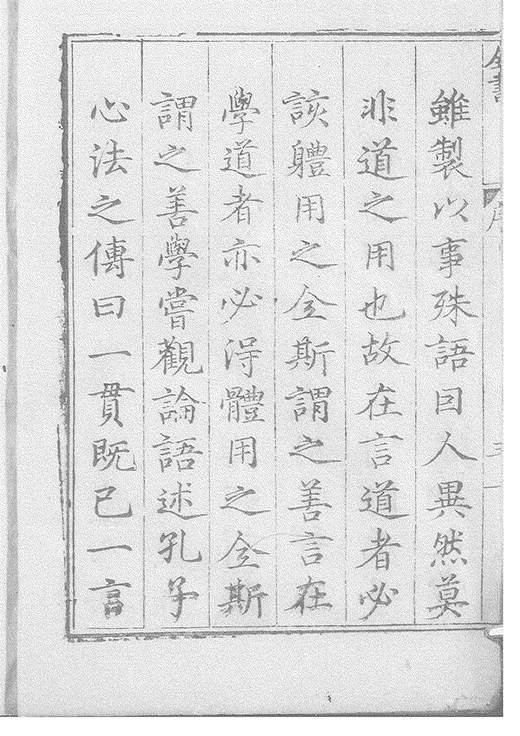 全書
序
雖製以事殊語曰人異然莫
非道之用也故在言道者必
該軆用之全斯謂之善言在
學道者亦必淂體用之全斯
謂之善學嘗觀論語述孔子
心法之傳曰一貫既已一言